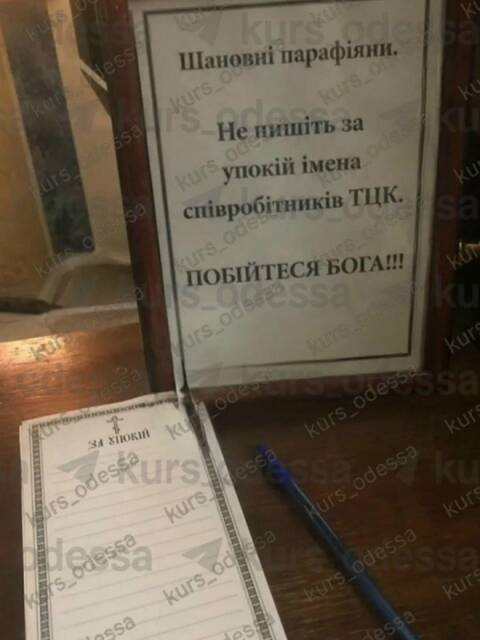 Шановні парафіяни.
Не пишіть за
упокій імена
співробітників ТЦК.
ПОБІЙТЕСЯ БОГА!!!
ЗА УПОКІЙ
kurs_odessa